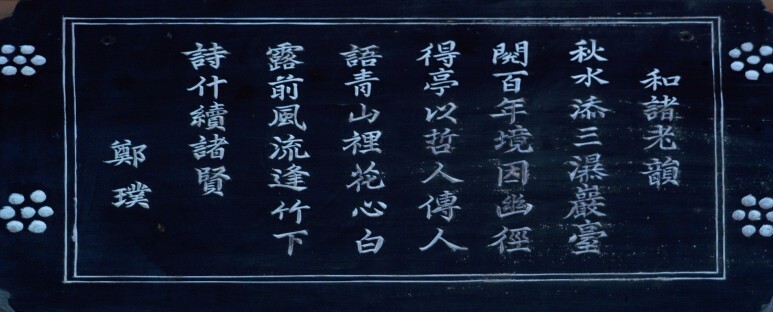 和諸老韻
秋水添三瀑巖臺
閱百年境因幽徑
得亭以哲人傳人
語青山裡花心白
露前風流逢竹下
詩什續諸賢
鄭璞